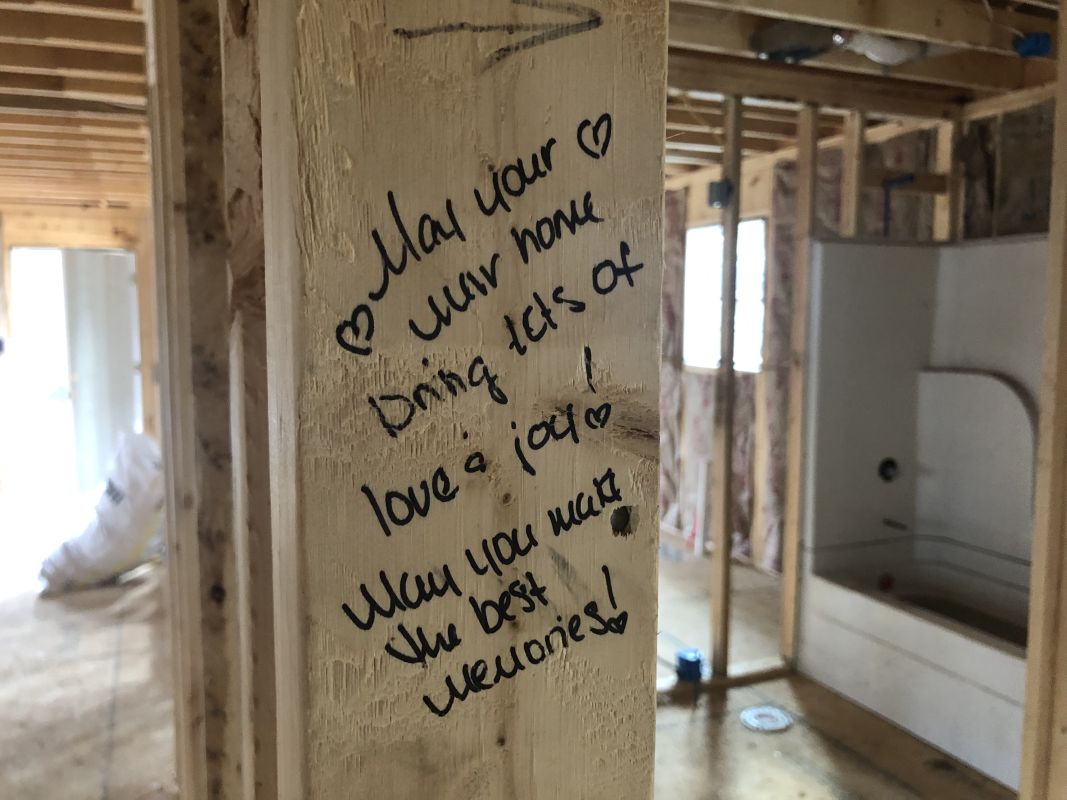 May your
new home
bring lots of
love & joy!
May you make
the best
memories!